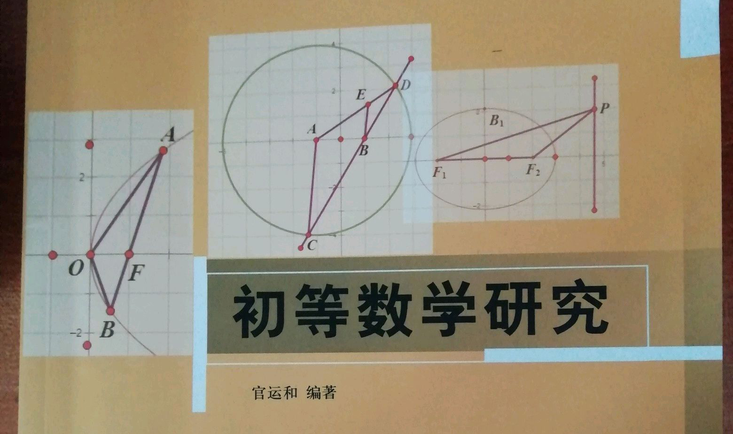 A
2
O
F
B
-2
4
2
E
D
A
B
C
-4
B₁
P
F₁
F₂
初等数学研究
官运和 编著